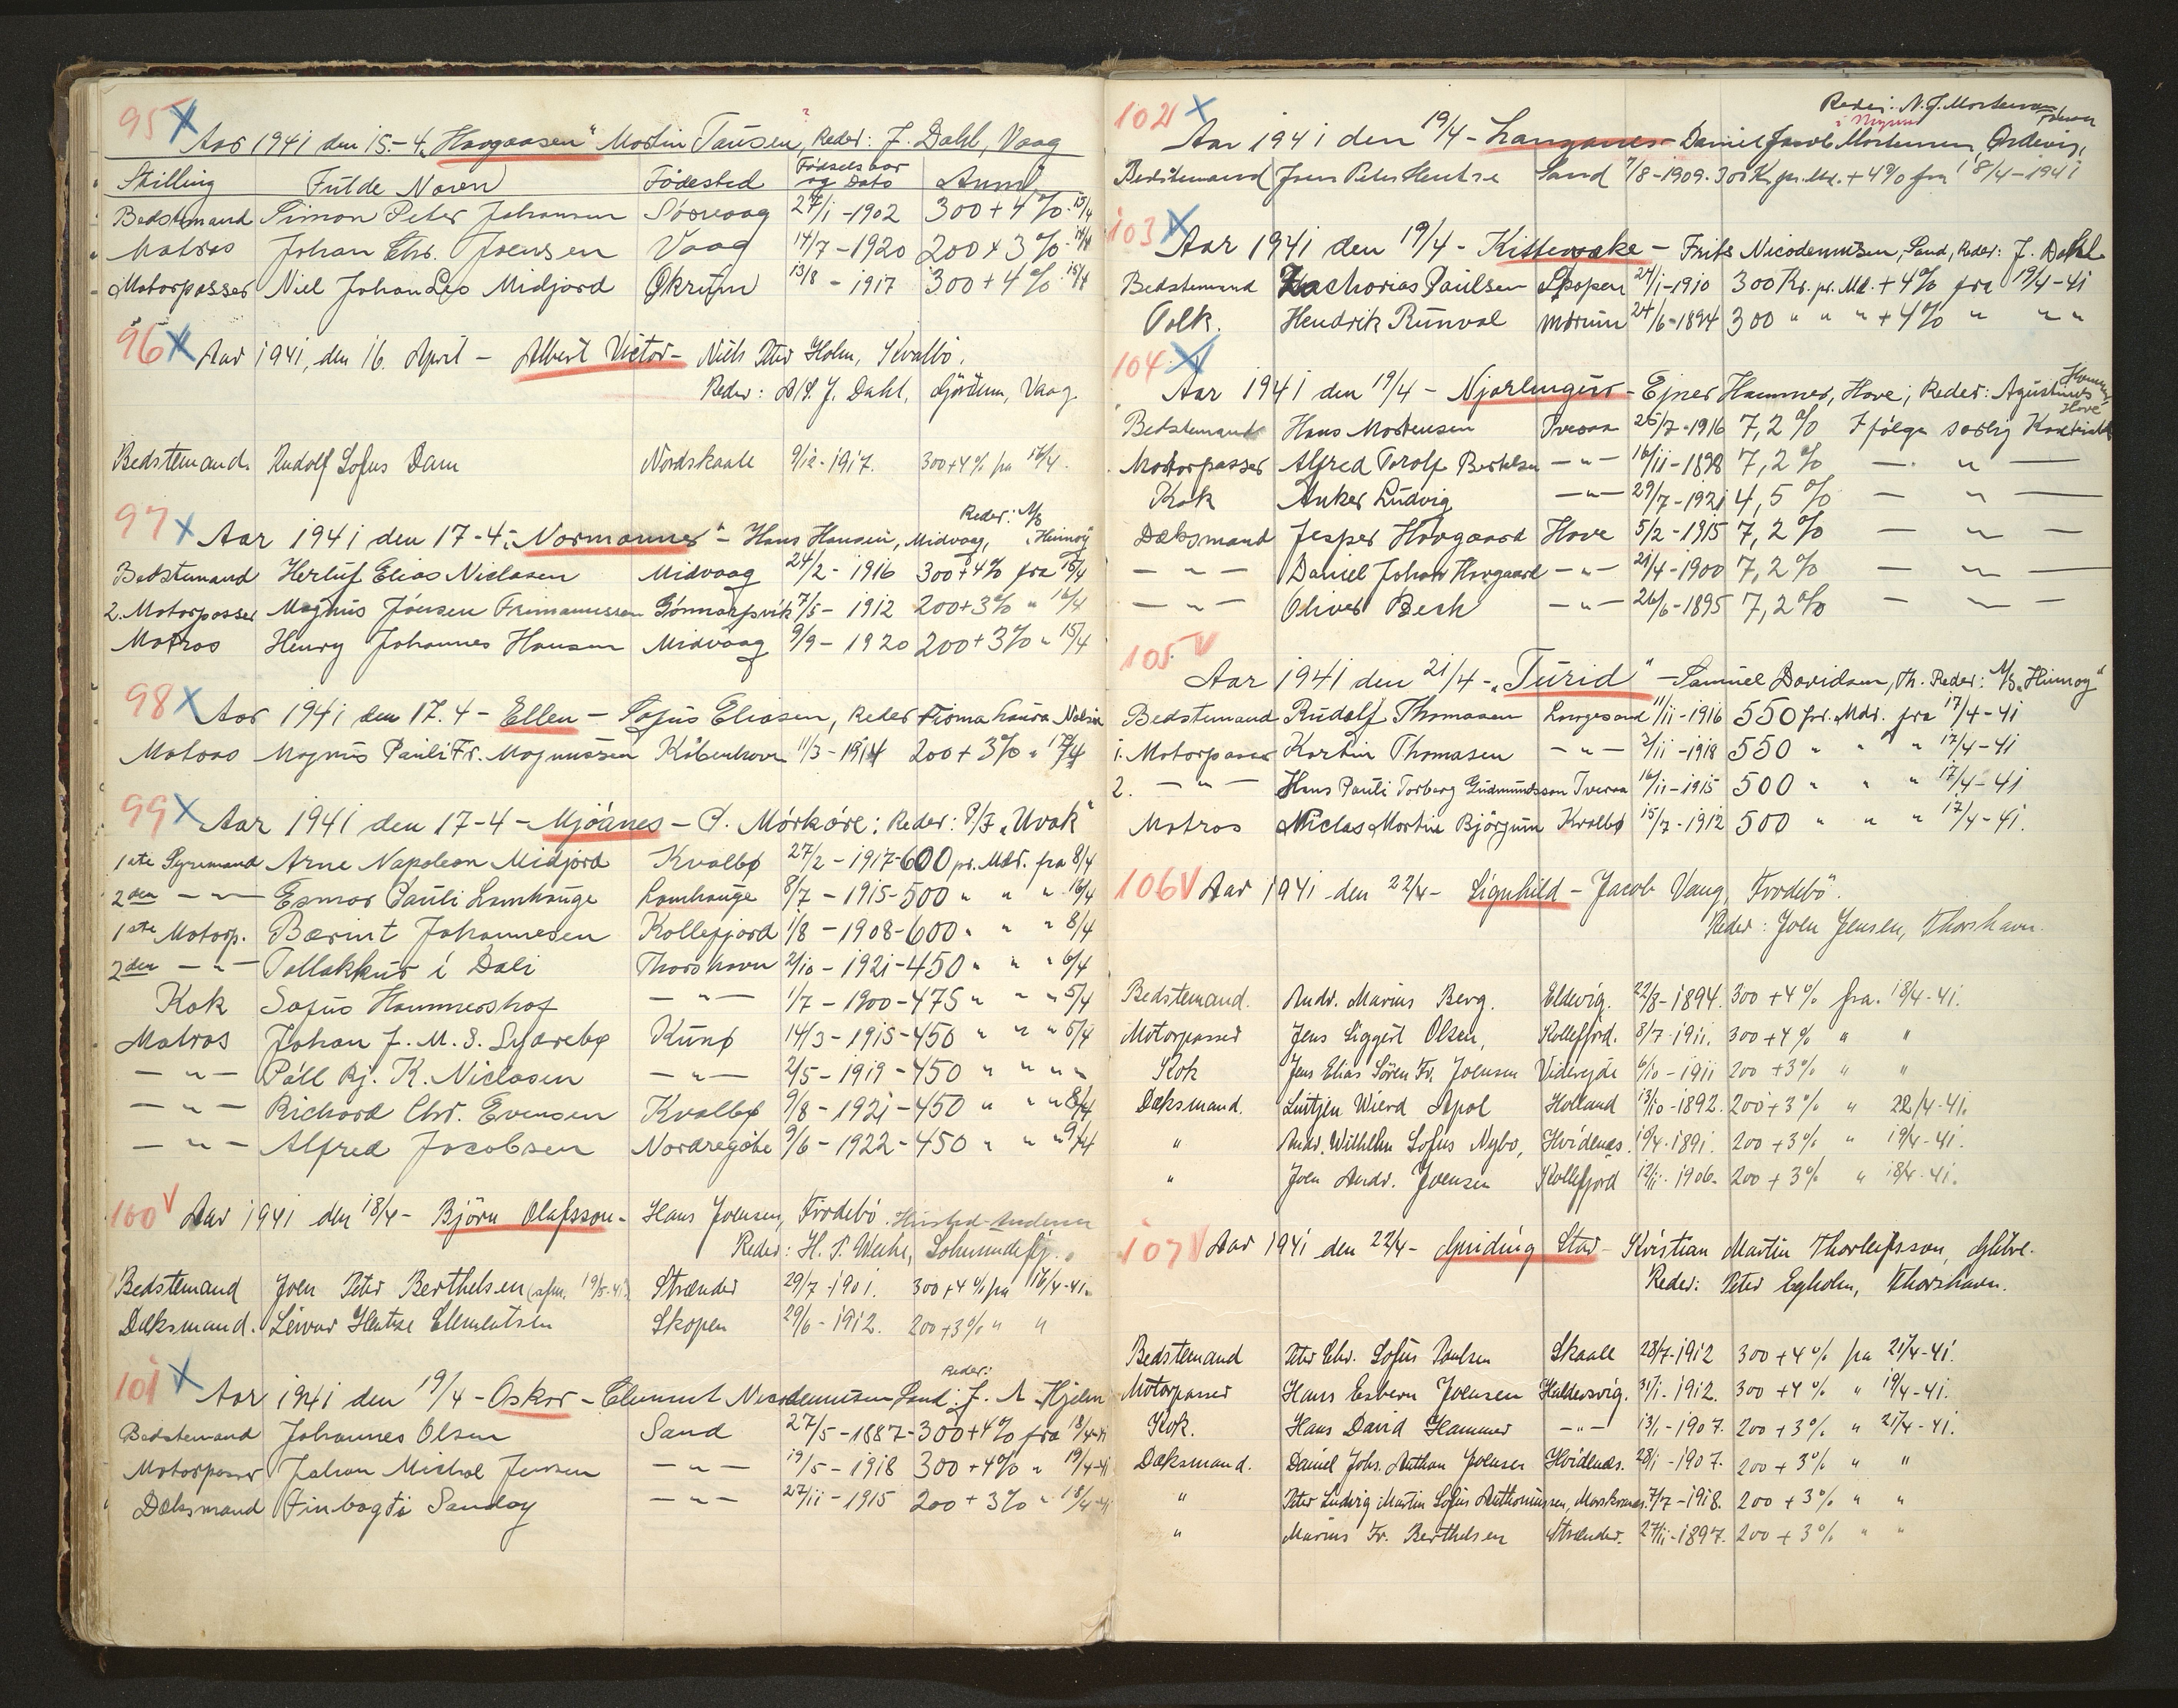 95
Aar 1941 den 15.-4. „Havgaasen" Martin Tausen, Reder: J. Dahl, Vaag
Stilling Fulde Navn Fødested Fødselsaar og Dato Anm
Bedstemand Simon Peter Johansen Sørvaag 27/1-1902 300+4% 15/4
Matros Johan Chr. Joensen Vaag 14/7-1920 200+3%
Motorpasser Niel Johan Leo Midjord Økrum 13/8-1917 300+4% 15/4
96 Aar 1941, den 16. April - Albert Victor - Niels Peter Holm, Kvalbö.
Reder: A/S. J. Dahl, Vaag.
Bedstemand. Rudolf Sofus Dam Nordskaale 9/12-1917. 300+4% fra 16/4.
Reder: A/S „Hemöy"
97 Aar 1941 den 17-4. „Normanner" - Hans Hansen, Midvaag,
Bedstemand Herluf Elias Niclasen Midvaag 24/2-1916 300+4% fra 15/4
2. Motorpasser Magnus Joensen Frimannssen 7/5-1912 200+3% " 16/4
Matros Henry Johannes Hansen Midvaag 9/9-1920 200+3% " 15/4
98 Aar 1941 den 17.4 - Ellen - Sofus Eliasen, Reder Firma Laura
Matros Magnus Pauli Fr. Magnussen København 11/3-1914 200+3% " 17/4
99 Aar 1941 den 17-4 - Mjóanes - P. Mörköre: Reder: P/F „Uvak"
1ste Styremand Arne Napoleon Midjord Kvalbø 27/2-1917-600 pr. Mdr. fra 8/4
2den -"- Esmar Pauli Lamhauge Lamhauge 8/7-1915-500 " " " 16/4
1ste Motorp. Bærint Johannesen Kollefjord 1/8-1908-600 " " " 8/4
2den -"- Tollakkur í Dali Thorshavn 2/10-1921-450 " " " 6/4
Kok Sofus Hammershof -"- 1/7-1900-475 " " " 5/4
Matros Johan J. M. S. Lydrebø Kunø 14/3-1915-450 " " " 5/4
-"- Páll Rj. K. Niclasen -"- 2/5-1919-450 " " " "
-"- Richard Chr. Evensen Kvalbø 9/8-1921-450 " " " 8/4
-"- Alfred Jacobsen Nordregöte 9/6-1922-450 " " " 9/4
100 Aar 1941 den 18/4 - Björn Olafsson - Hans Joensen, Frodebö.
Reder: H. P. Weihe,
Bedstemand Joen Peter Berthelsen Strænder 29/7-1901. 300+4% fra 16/4-41.
Dæksmand. Leivur Hentze Clementsen Skopen 29/6-1912. 200+3% " "
Reder:
101 Aar 1941 den 19/4 - Oskar - Clement Nicodemussen Sand: J. A Hjelm
Bedstemand Johannes Olsen Sand 27/5-1887-300+4% fra 18/4-41
Motorpasser Johan Michal Jensen -"- 19/5-1918 300+4% " 19/4-41
Dæksmand Finbogi Sandoy -"- 27/11-1915 200+3% " 18/4-41
Reder: N. J. Mortensen
102 Aar 1941 den 19/4 - Langanes - Daniel Jacob Mortensen Ördevig,
Bedstemand Joen Peter Hentze Sand 7/8-1909. 300 Kr. pr. Md. + 4% fra 18/4-1941
103 Aar 1941 den 19/4 - Kittewake - Frits Nicodemussen, Sand, Reder: J. Dahl
Bedstemand Zacharias Paulsen Skopen 24/1-1910 300 Kr. pr. Md. + 4% fra 19/4-41
Hendrik Runval 24/6-1894 300 " " " + 4% " " "
104 Aar 1941 den 19/4 - Njarlingur - Ejner Hammer, Hove; Reder: Agustinus Hammer, Hove
Bedstemand Hans Mortensen Tveraa 25/7-1916 7,2% Ifølge særlig Kontrakt
Motorpasser Alfred Torolf Bertelsen -"- 16/11-1898 7,2% - " -
Kok Anker Ludvig -"- 29/7-1921 4,5% - " -
Dæksmand Jesper Hovgaard Hove 5/2-1915 7,2% - " -
-"- Daniel Johan Hovgaard -"- 21/4-1900 7,2% - " -
-"- Oliver Bech -"- 26/6-1895 7,2% - " -
105 Aar 1941 den 21/4 - „Turid" - Samuel Davidsen, Th. Reder: A/S „Hemöy"
Bedstemand Rudolf Thomasen 11/11-1916 550 pr. Mdr. fra 17/4-41
1. Motorpasser Martin Thomasen -"- 2/11-1918 550 " " " 17/4-41
2. -"- Hans Pauli Torberg Gudmundsson Tveraa 16/11-1915 500 " " " 17/4-41
Matros Niclas Martin Björgum Kvalbø 15/7-1912 500 " " " 17/4-41.
106 Aar 1941 den 22/4 - Signhild - Jacob Vang, Frodebö.
Reder: Joen Jensen, Thorshavn.
Bedstemand. Andr. Marius Berg. Eldevig. 22/8-1894. 300+4% fra. 18/4-41.
Motorpasser Jens Siggert Olsen, Kollefjord. 8/7-1911. 300+4% " "
Kok Jens Elias Sören Fr. Joensen Videvejde 6/10-1911 200+3% " "
Dæksmand. Luitjen Wierd Apol Holland 13/10-1892. 200+3% " 22/4-41.
" Andr. Wilhelm Sofus Nybo, Hvidenæs. 19/4-1891. 200+3% " 19/4-41.
" Joen Andr. Joensen Kollefjord 12/11-1906. 200+3% " 18/4-41.
107 Aar 1941 den 22/4 - Guiding Star - Kristian Martin Thorleifsson, Glibre.
Reder: Peter Egholm, Thorshavn.
Bedstemand Peter Chr. Sofus Poulsen Skaale 28/7-1912 300+4% fra 21/4-41.
Motorpasser Hans Esbern Joensen Haldersvig. 31/1-1912. 300+4% " 19/4-41.
Kok. Hans David Hammer -"- 13/1-1907. 200+3% " 21/4-41.
Dæksmand. Daniel Johs. Anthon Joensen Hvidenæs. 28/1-1907. 200+3% " "
" Peter Ludvig Martin Sofus Anthoniussen, Morskranes. 7/7-1918. 200+3% " "
" Marius Fr. Berthelsen Strænder. 27/11-1897. 200+3% " "